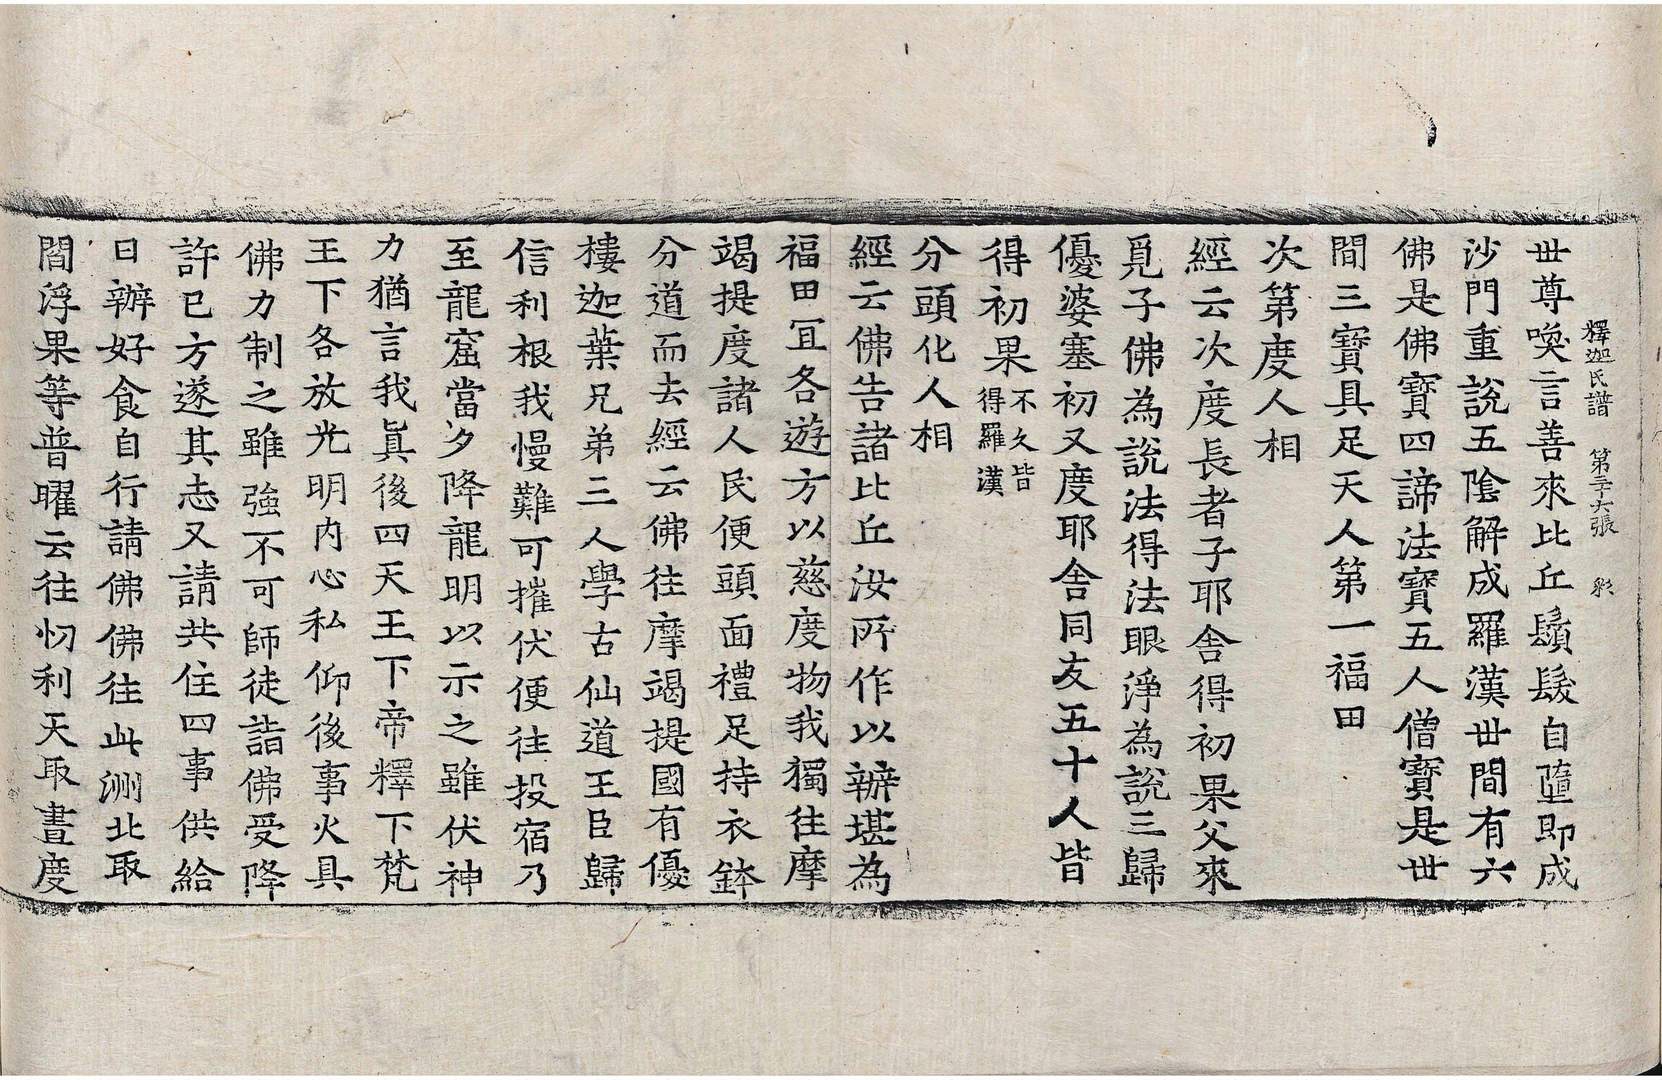 釋迦氏譜 第三十六張 彩
世尊喚言善來比丘鬚髮自墮即成
沙門重說五陰解成羅漢世間有六
佛是佛寶四諦法寶五人僧寶是世
間三寶具足天人第一福田
次第度人相
經云次度長者子耶舍得初果父來
覓子佛為說法得法眼淨為說三歸
優婆塞初又度耶舍同友五十人皆
得初果不久皆得羅漢
分頭化人相
經云佛告諸比丘汝所作以辦堪為
福田冝各遊方以慈度物我獨往摩
竭提度諸人民便頭面禮足持衣鉢
分道而去經云佛往摩竭提國有優
樓迦葉兄弟三人學古仙道王臣歸
信利根我慢難可摧伏便往投宿乃
至龍窟當夕降龍明以示之雖伏神
力猶言我眞後四天王下帝釋下梵
王下各放光明內心私仰後事火具
佛力制之雖強不可師徒詣佛受降
許已方遂其志又請共住四事供給
日辦好食自行請佛佛往此洲北取
閻浮果等普曜云往忉利天取晝度